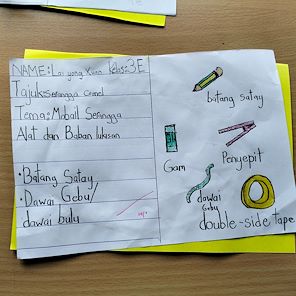 NAME: Lai yong Xuan Kelas: 3E
Tajuk: serangga Comel
Tema: Mobail Serangga
Alat dan Bahan lukisan
• Batang Satay
• Dawai Gebu/
dawai bulu
batang satay
Gam
Penyepit
dawai
Gebu
double-side tape